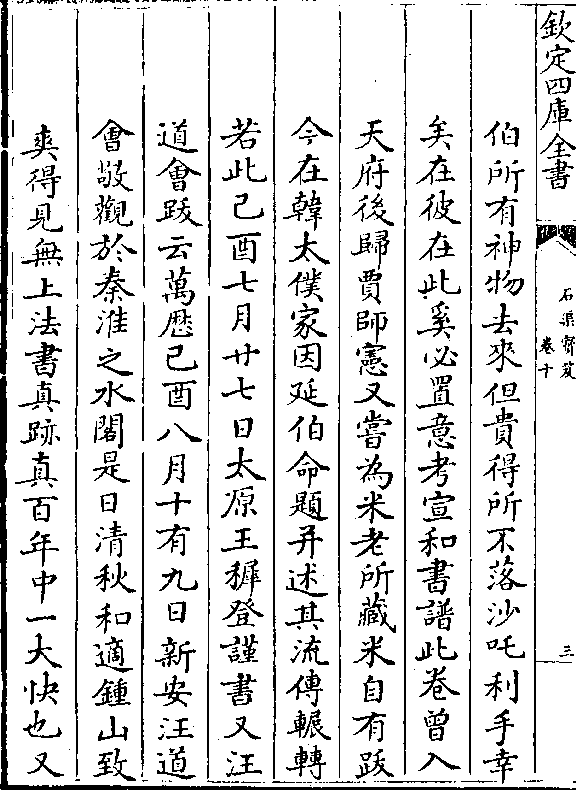 欽定四庫全書
石渠寶笈
卷十
三
伯所有神物去來但貴得所不落沙吒利手幸
矣在彼在此奚必置意考宣和書譜此卷曾入
天府後歸賈師憲又嘗為米老所藏米自有跋
今在韓太僕家因延伯命題并述其流傳輾轉
若此己酉七月廿七日太原王穉登謹書又汪
道會跋云萬厯己酉八月十有九日新安汪道
會敬觀於秦淮之水閣是日清秋和適鍾山致
爽得見無上法書真跡真百年中一大快也又